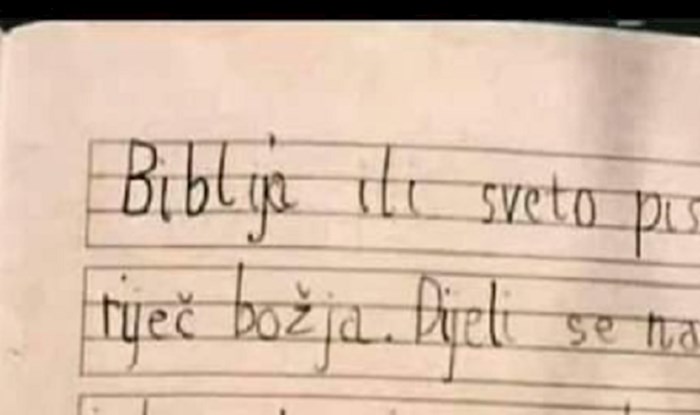 Biblija ili sveto pis
riječ božja. Dijeli se na